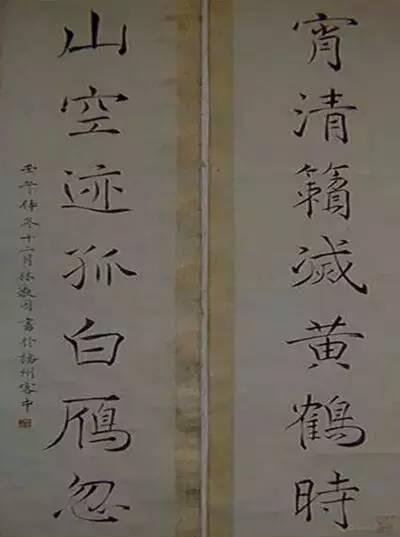 宵清籟滅黄鶴時
山空迹孤白鴈忽
壬午 冬十二月林 書於揚州客中